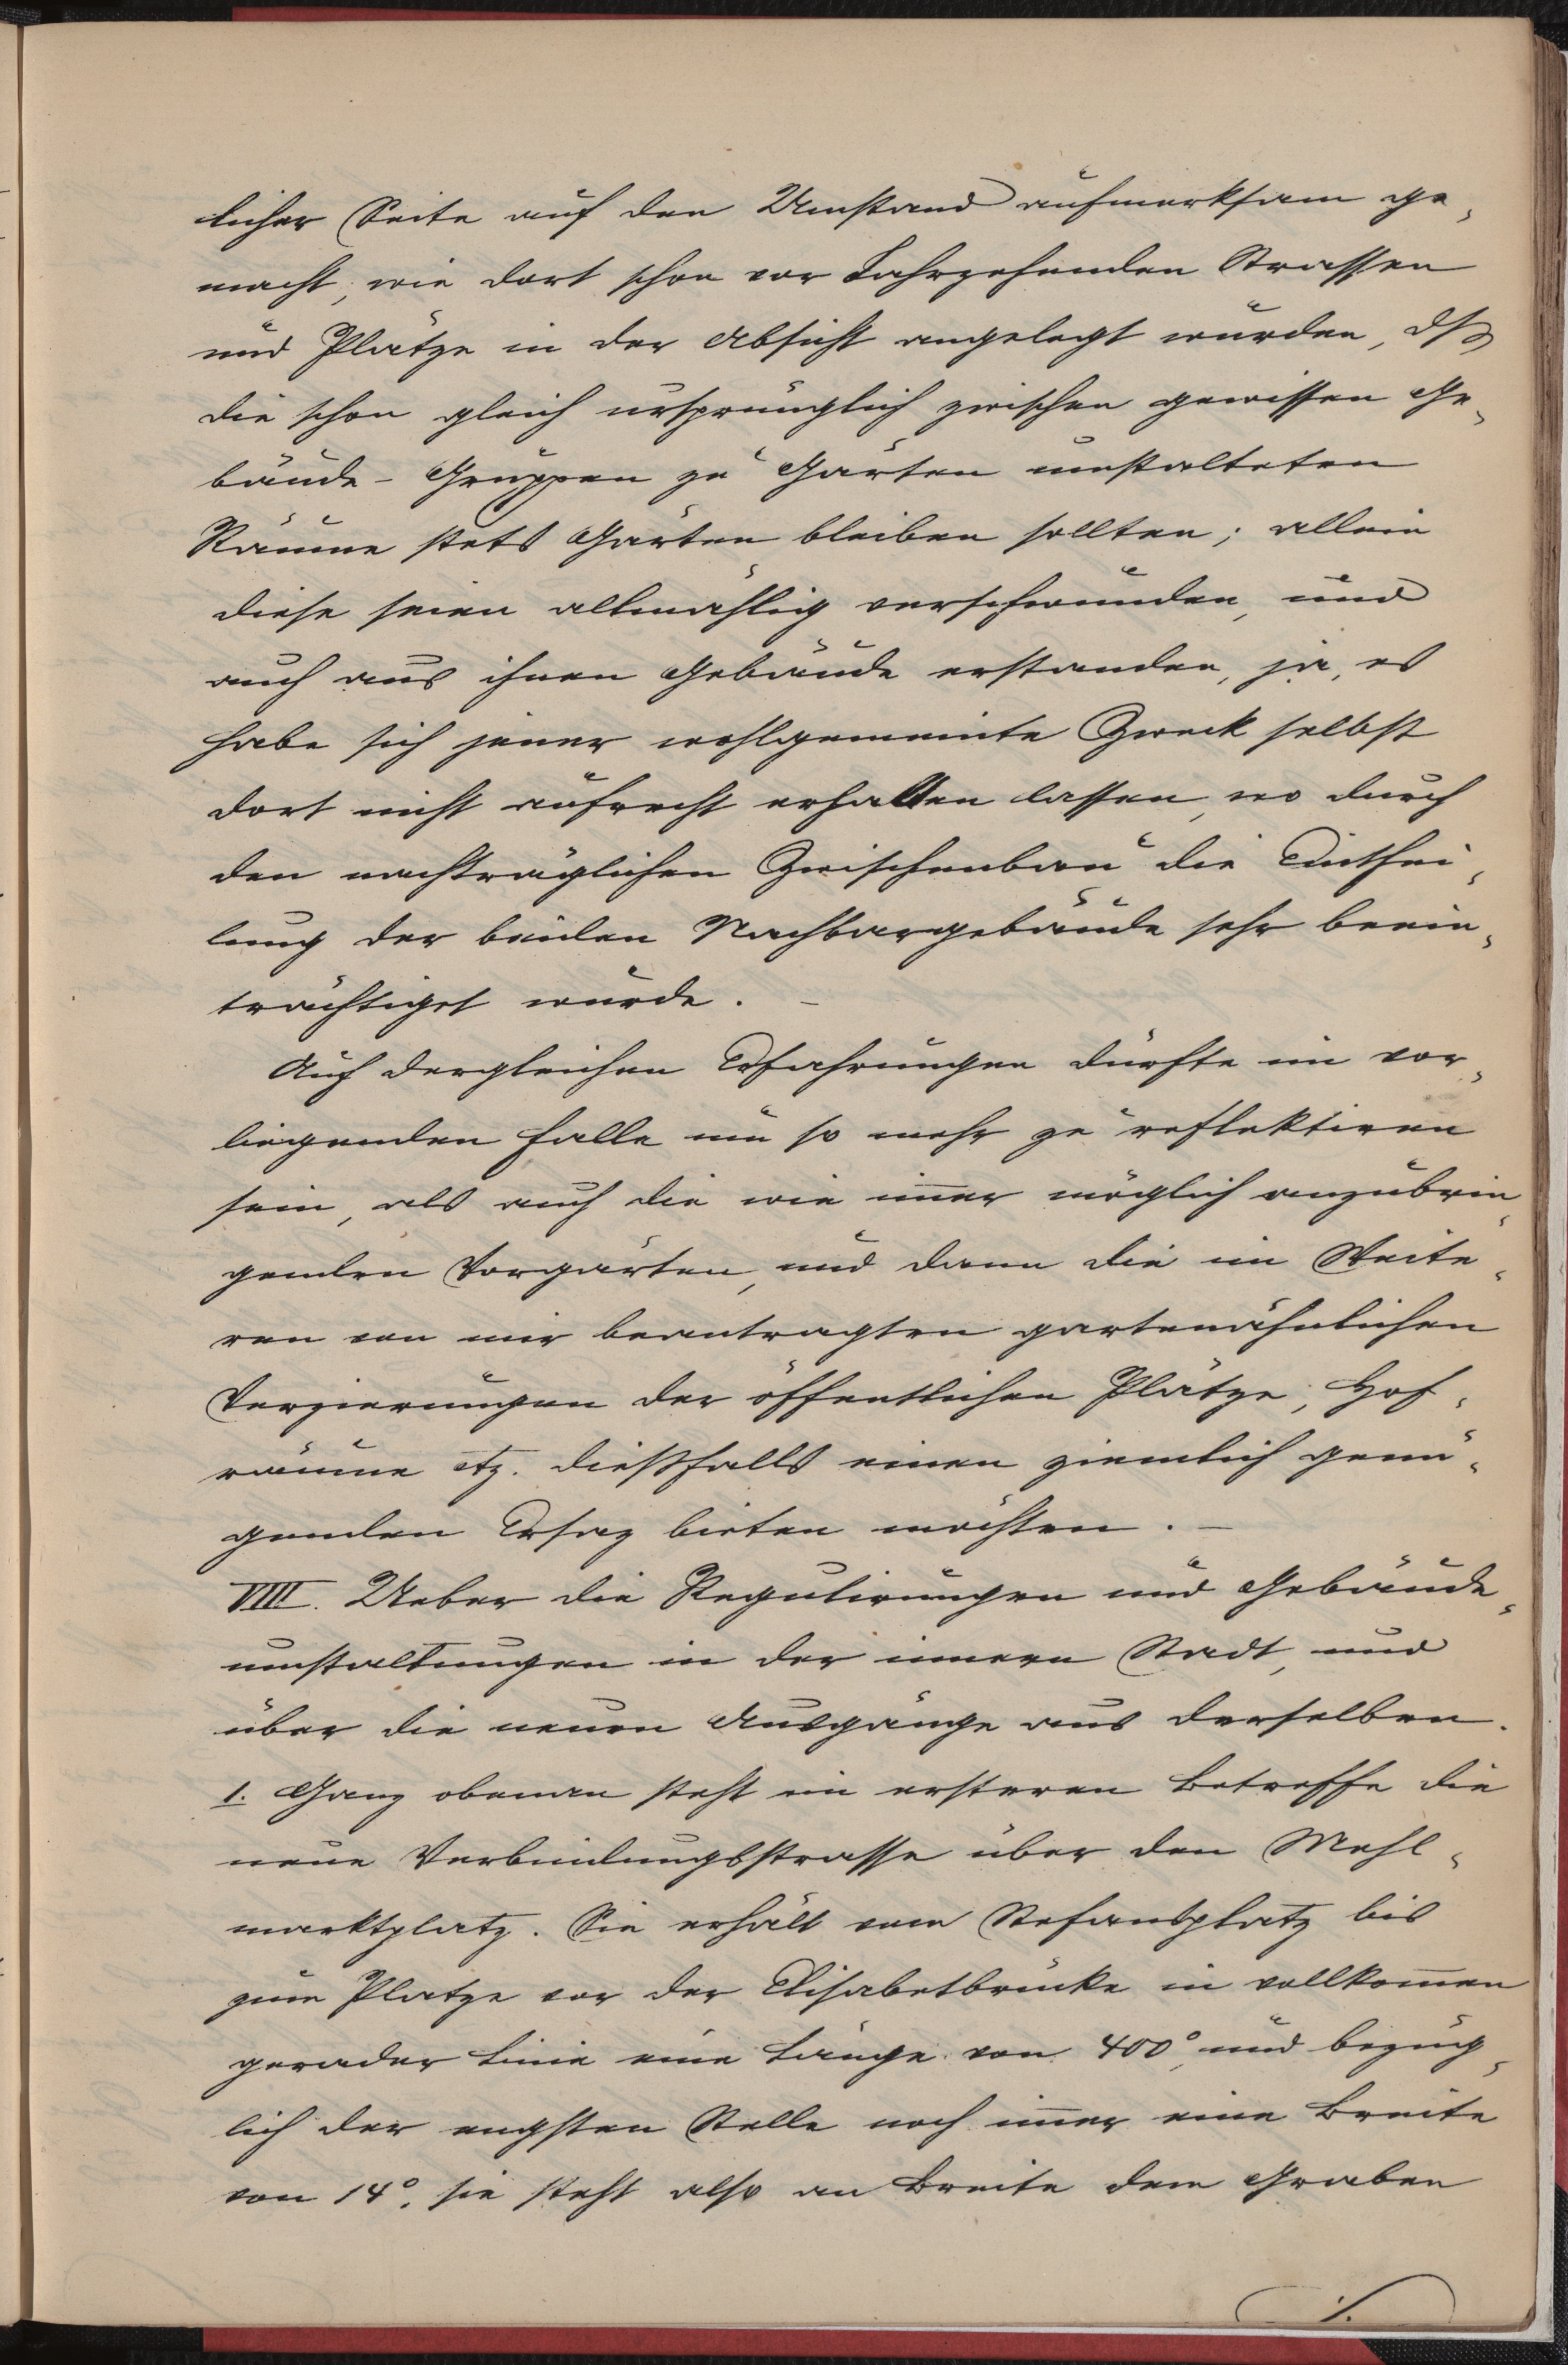 licher Seite auf den Umstand aufmerksam ge-
macht, wie dort schon vor Jahrzehenden Strassen
und Plätze in der Absicht angelegt wurden, dß
die schon gleich ursprünglich zwischen gewissen Ge-
bäude-Gruppen zu Gärten umstalteten
Räume stets Gärten bleiben sollten; allein
diese seien allmählig verschwunden, und
auch aus ihnen Gebäude erstanden, ja, es
habe sich jener wohlgemeinte Zweck selbst
dort nicht aufrecht erhalten lassen, wo durch
den nachträglichen Zwischenbau die Einthei-
lung der beiden Nachbargebäude sehr beein-
trächtiget wurde. –
Auf dergleichen Erfahrungen dürfte im vor-
liegenden Falle um so mehr zu reflektiren
sein, als auch die wie im̄er möglich anzubrin-
genden Vorgärten, und dann die im Weite-
ren von mir beantragten gartenähnlichen
Verzierungen der öffentlichen Plätze, Hof-
räume etz. dießfalls einen ziemlich genü-
genden Ersaz bieten möchten. –
VIII. Ueber die Regulirungen und Gebäude-
umstaltungen in der innern Stadt, und
über die neuen Ausgänge aus derselben.
1. Ganz obenan steht im ersteren Betreffe die
neue Verbindungsstrasse über den Mehl-
marktplatz. Sie erhält vom Stefansplatz bis
zum Platze vor der Elisabetbrücke in vollkom̄en
gerader Linie eine Länge von 400°, und bezüg-
lich der engsten Stelle noch im̄er eine Breite
von 14°, sie steht also an Breite dem Graben
./.